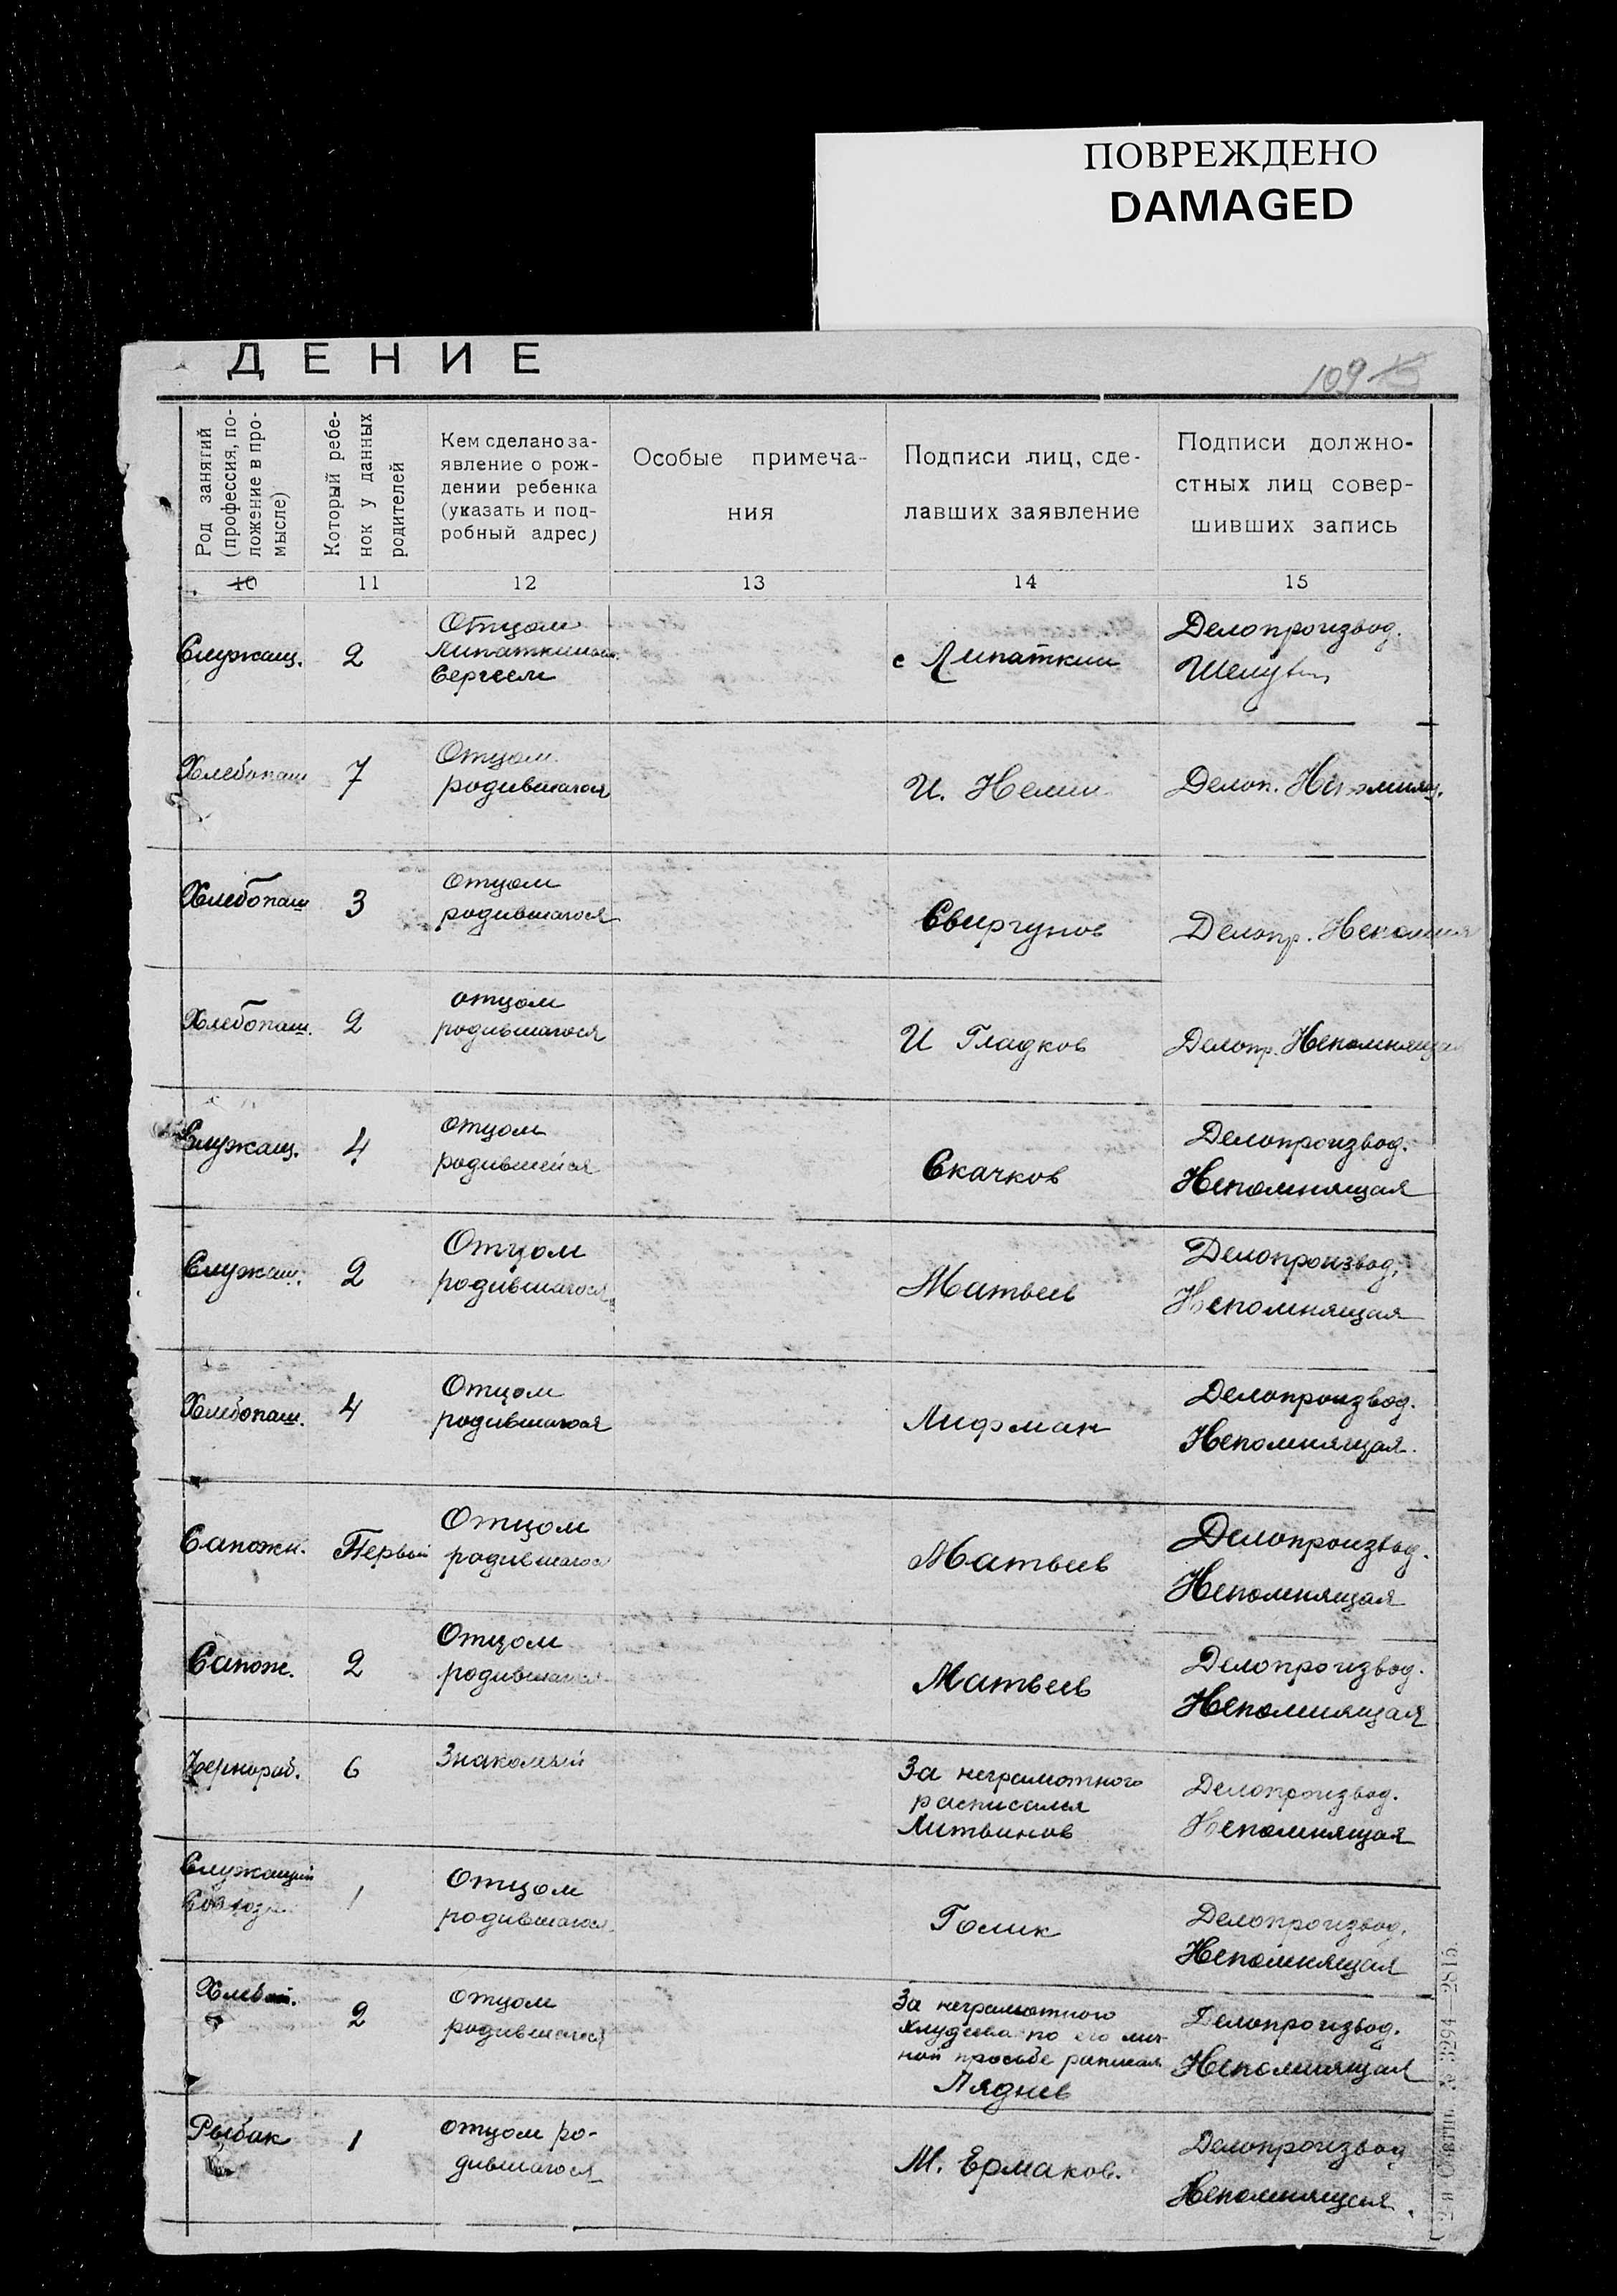 ПОВРЕЖДЕНО
DAMAGED
ДЕНИЕ
109
Род занятий
(профессия, по-
ложение в про-
мысле)
Который ребе-
нок у данных
родителей
Кем сделано за-
явление о рож-
дении ребенка
(указать и под-
робный адрес)
Особые примеча-
ния
Подписи лиц, сде-
лавших заявление
Подписи должно-
стных лиц совер-
шивших запись
10 11 12 13 14 15
Служащ. 2
Отцом
Липаткиным
Сергеем
с Липаткин
Делопроизвод.
Хлебопаш 7
Отцом
родившагося
И. Немии
Делоп. Непомнящ.
Хлебопаш 3
отцом
родившагося
Свиргунов
Делопр. Непомня
Хлебопаш. 2
отцом
родившагося
И Гладков
Делопр. Непомнящая
Служащ. 4
отцом
родившейся
Скачков
Делопроизвод.
Непомнящая
Служащ. 2
Отцом
родившагося
Матвеев
Делопроизвод.
Непомнящая
Хлебопаш. 4
Отцом
родившагося
Лифман
Делопроизвод.
Непомнящая.
Сапожн. Первый
Отцом
родившагося
Матвеев
Делопроизвод.
Непомнящая
Сапож. 2
Отцом
родившагося
Матвеев
Делопроизвод.
Непомнящая
Чернораб. 6
Знакомый
За неграмотного
расписался
Литвинов
Делопроизвод.
Непомнящая
Служащий
Союза
1
Отцом
родившагося
Голик
Делопроизвод.
Непомнящая
2
отцом
родившагося
За неграмотного
Хлудеева по его лич-
ной просьбе расписал
Ляднев
Делопроизвод.
Непомнящая
Рыбак 1
отцом ро-
дившагося
М. Ермаков.
Делопроизвод
Непомнящая.
№ 3294—2815.